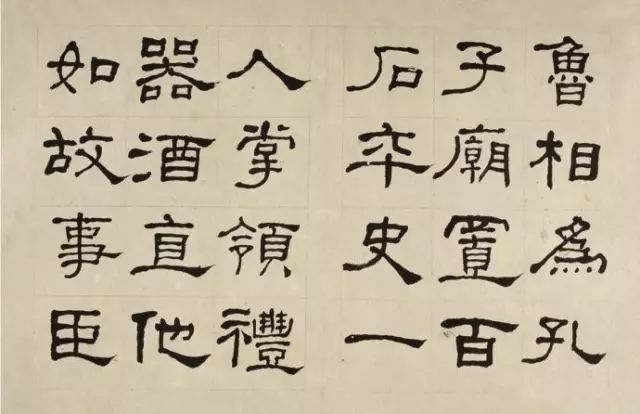 魯相為孔
子廟置百
石卒史一
人掌領禮
器酒直他
如故事臣